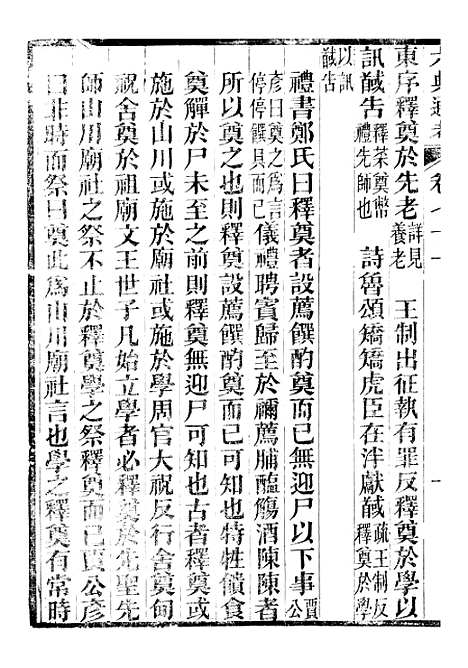 六典通考 卷七十一
東序釋奠於先老詳見養老 王制出征執有罪反釋奠於學以
訊馘告釋菜奠幣禮先師也 詩魯頌矯矯虎臣在泮獻馘疏王制反釋奠於學
以訊馘告
禮書鄭氏曰釋奠者設薦饌酌奠而已無迎尸以下事賈公
彥曰奠之為言停停饌具而已儀禮聘賓歸至於禰薦脯醢觴酒陳陳者
所以奠之也則釋奠設薦饌酌奠而已可知也特牲饋食
奠觶於尸未至之前則釋奠無迎尸可知也古者釋奠或
施於山川或施於廟社或施於學周官大祝反行舍奠甸
祝舍奠於祖廟文王世子凡始立學者必釋奠於先聖先
師山川廟社之祭不止於釋奠學之祭釋奠而已賈公彥
曰非時而祭曰奠此為山川廟社言也學之釋奠有常時